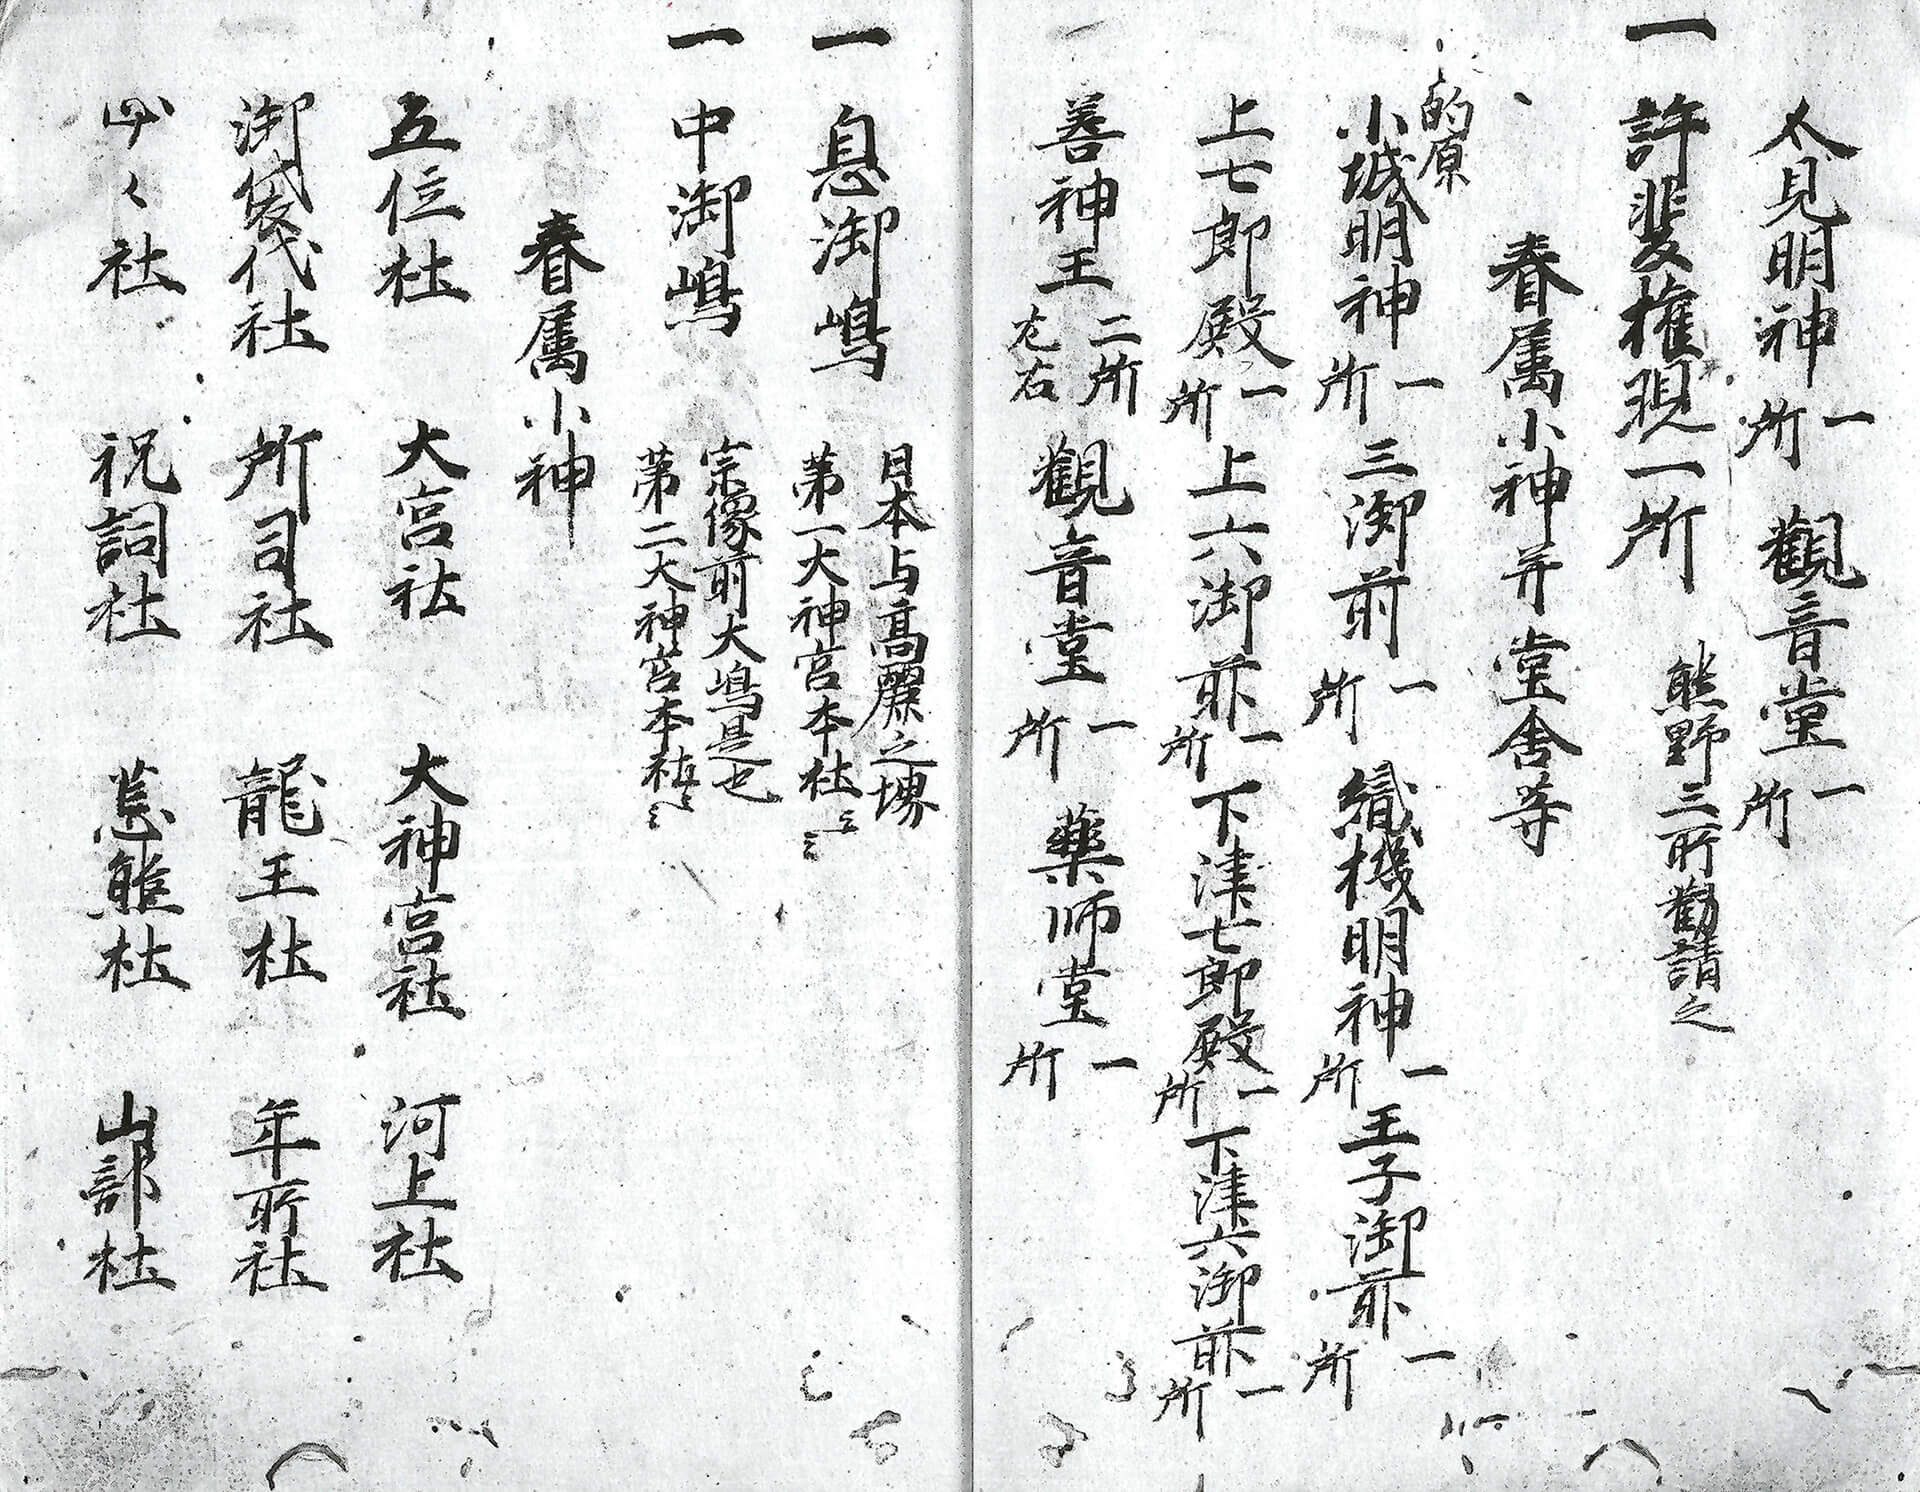 大見明神一所 觀音堂一所
一 許斐権現一所 熊野三所勧請之
眷属小神并堂舎等
的原
小城明神一所 三御前一所 織機明神一所 王子御前一所
上七郎殿一所 上六御前一所 下津七郎殿一所 下津六御前一所
善神王二所左右 觀音堂一所 藥師堂一所
一 息御嶋 日本与高麗之堺
第一大神宮本社云々
一 中御嶋 宗像前大嶋是也
第二大神宮本社云々
眷属小神
五位社 大宮社 大神宮社 河上社
御袋代社 所司社 龍王社 年所社
社 祝詞社 熊社 山部社